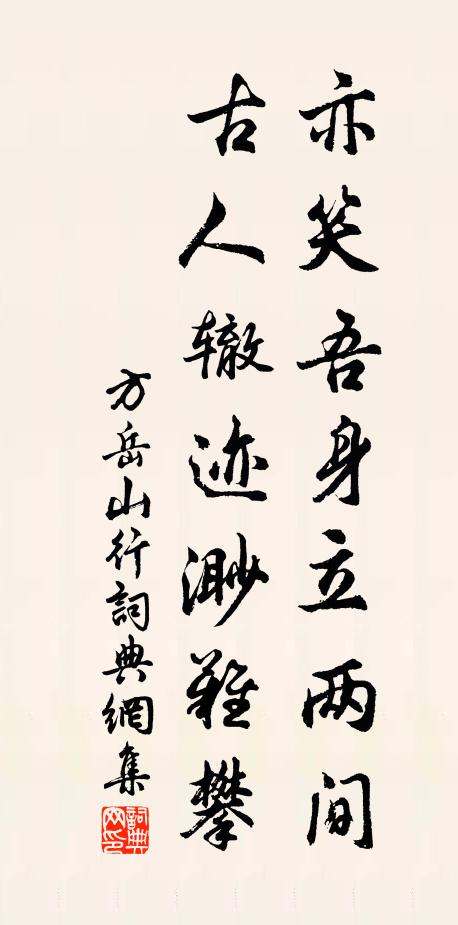 亦笑吾身立两间
古人辙迹渺难攀
方岳山行詞典網集
詞典網印